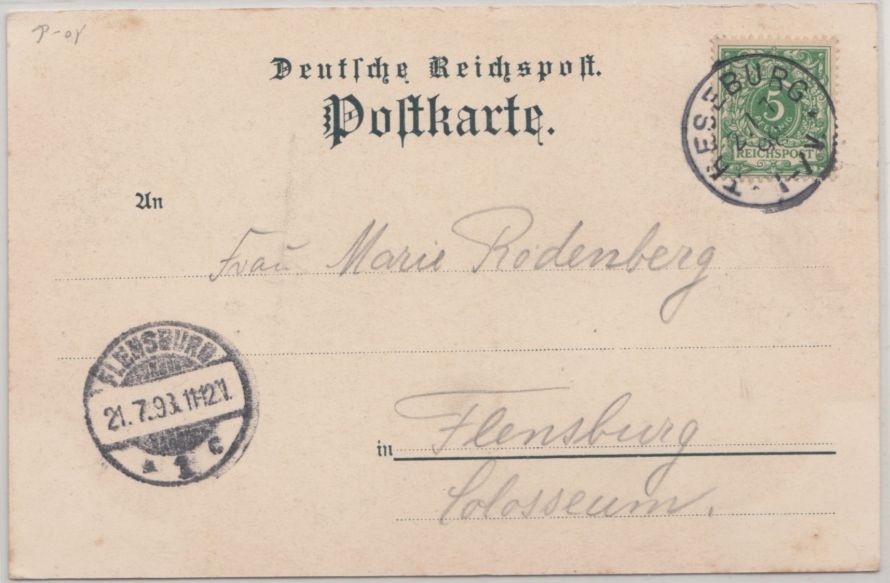 Deutsche Reichspost.
Postkarte.
5
REICHSPOST
TRESEBURG
An
Frau Marie Rodenberg
FLENSBURG
21.7.98.11-12V.
* 1 C
in Flensburg
Colosseum.